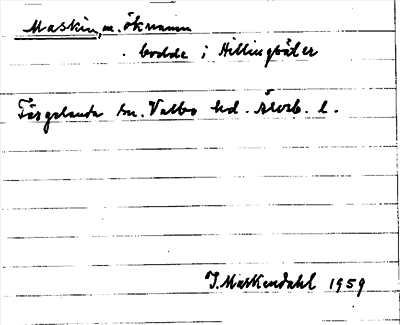 Maskin, m. öknamn
bodde i Hillingsäter
Färgelanda sn. Valbo hd. Älvsb. l.
J. Markendahl 1959